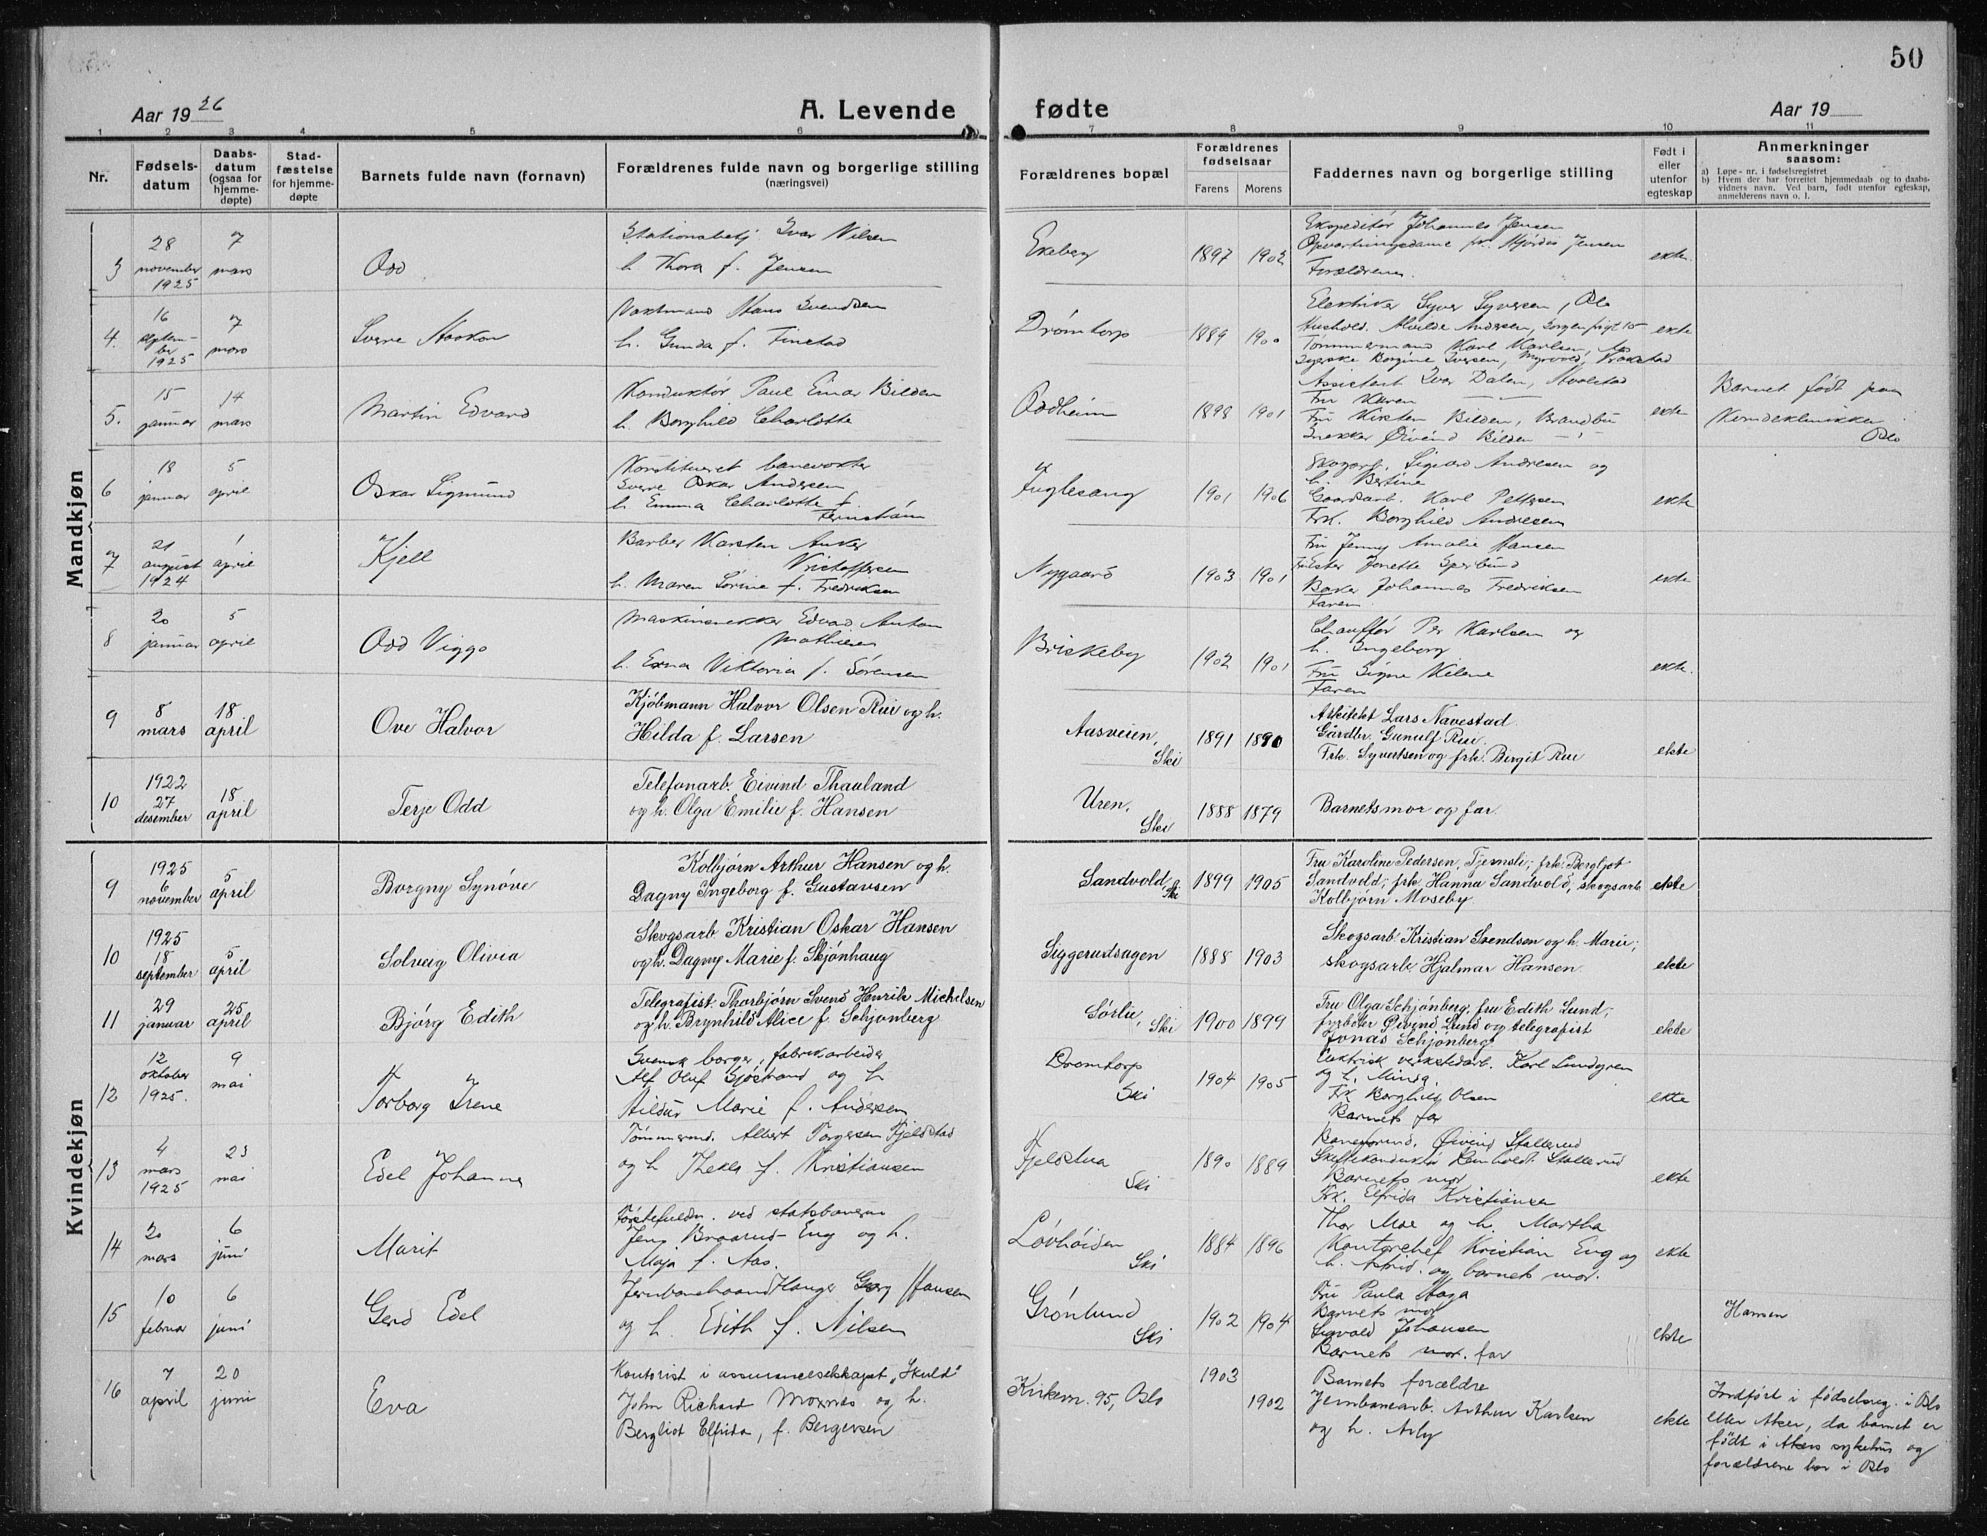 50
Aar 1926
A. Levende fødte
Aar 19
1 2 3 4 5 6 7 8 9 10 11
Nr.
Fødselsdatum
Daabsdatum (ogsaa for hjemmedøpte)
Stadfæstelse for hjemmedøpte
Barnets fulde navn (fornavn)
Forældrenes fulde navn og borgerlige stilling (næringsvei)
Forældrenes bopæl
Forældrenes fødselsaar
Farens Morens
Faddernes navn og borgerlige stilling
Født i eller utenfor egteskap
Anmerkninger saasom:
a) Løpe-nr. i fødselsregistret
b) Hvem der har forrettet hjemmedaab og to daabsvidners navn. Ved barn, født utenfor egteskap, anmelderens navn o. l.
Mandkjøn
3
28 november 1925
7 mars
Odd
Stationsbetj. Ivar Nilsen
h. Thora f. Jensen
Ekeberg
1897 1902
Ekspeditør Johannes Jensen
Opvartningsdame frk. Hjørdis Jensen
Forældrene.
ekte
4.
16 september 1925
7 mars
Sverre Haakon
Vaktmand Hans Svendsen
h. Gunda f. Finstad
Drømtorp
1889 1900
Elektriker Syver Syversen, Oslo
Hushold. Alvilde Andersen, Sorgenfrigt 15
Tømmermand Karl Karlsen, Aas
Syerske Borgine Iversen, Myrvold, Kraakstad
ekte
5.
15 januar
14 mars
Martin Edvard
Konduktør Paul Einar Bilden
h. Borghild Charlotte
Oddheim
1898 1901
Assistent Ivar Dalen,
Fru Karen
Fru Kirsten Bilden, Brandbu
Snekker Øivind Bilden
ekte
Barnet født paa
Kvindeklinikken
Oslo
6
18 januar
5 april
Oskar Sigmund
Konstitueret banevokter
Sverre Oskar Andersen
h. Emma Charlotte f.
Fernström
Fuglesang
1901 1906
Skogarb. Sigvard Andresen og
h. Bertine
Gaardsarb. Karl Pettersen
Frk. Borghild Andresen
ekte
7
21 august 1924
1 april
Kjell
Barber Karsten Anker
Kristoffersen
h. Maren Sørine f. Fredriksen
Nygaard
1903 1901
Fru Jenny Amalie Hansen
Frk Ester Jonette
Baker Johannes Fredriksen
Faren
ekte
8
20 januar
5 april
Odd Viggo
Maskinsnekker Edvard Anton
Mathisen
h. Erna Viktoria f. Sørensen
Briskeby
1902 1901
Chauffør Per Karlsen og
h. Ingeborg
Fru Signe Kilene
Faren
ekte.
9
8 mars
18 april
Ove Halvor
Kjøbmann Halvor Olsen Rui og h.
Hilda f. Larsen
Aasveien, Ski
1891 1890
Arkitekt Lars Navestad.
Gårdbr. Gunulf Rui.
Frk. Syvertsen og frk. Birgit Rui
ekte
10
1922 27 desember
18 april
Terje Odd
Telefonarb. Eivind Thauland
og h. Olga Emilie f. Hansen
Uren, Ski
1888 1879
Barnets mor og far.
Kvindekjøn
9
1925 6 november
5 april
Borgny Synøve
Kolbjørn Arthur Hansen og h.
Dagny Ingeborg f. Gustavsen
Sandvold, Ski
1899 1905
Fru Karoline Pedersen, Tjemsli; frk. Bergljot
Sandvold; frk. Hanna Sandvold; skogsarb
Kolbjørn Moseby.
ekte
10
1925 18 september
5 april
Solveig Olivia
Skogsarb Kristian Oskar Hansen
og h. Dagny Marie f. Skjønhaug
Siggerudsagen
1888 1903
Skogsarb. Kristian Svendsen og h. Marie;
skogsarb Hjalmar Hansen.
ekte
11
29 januar
25 april
Bjørg Edith
Telegrafist Thorbjørn Svend Henrik Michelsen
og h. Brynhild Alice f. Schjønberg
Sørlie, Ski
1900 1899
Fru Olga Schjønberg, fru Edith Lund,
fyrbøter Øivind Lund og telegrafist
Jonas Schjønberg
ekte
12
12 oktober 1925.
9 mai
Torborg Irene
Svensk borger, fabrikarbeider
Alf Oluf Sjöstrand og h
Hildur Marie f. Andersen
Drømtorp Ski
1904 1905
Elektrisk verkstedarb. Karl Lundgren
og h. Minda.
Frk Borghild Olsen
Barnets far
ekte
13
4 mars 1925
23 mai
Edel Johanne
Tømmermd. Albert Torgersen Fjeldstad
og h Thekla f. Kristiansen
Fjelstua Ski
1890 1889
Baneformd. Øivind Stallerud
Skiftekonduktør Reinholdt Stallerud
Barnets mor
Frk. Elfrida Kristiansen
ekte
14
20 mars
6 juni
Marit
Førstefuldm. ved statsbanerne
Jens Braarud Eng og h.
Maja f. Aas.
Løvhøiden Ski
1884 1896
Thor Moe og h. Martha
Kontorchef Kristian Eng og
h. Astrid. og barnets mor.
ekte
15
10 februar
6 juni
Gerd Edel
Jernbanehaandlanger Georg Hansen
og h. Edith f. Nilsen
Grønlund Ski
1902 1904
Fru Paula Haga
Barnets mor
Sigvald Johansen
Barnets mor. far
ekte
Hansen
16
7 april
20 juni
Eva
Kontorist i assuranceselskapet „Skuld"
John Richard Moxnes og h.
Bergliot Elfrida, f. Bergersen
Kirkevn. 95, Oslo
1903 1902
Barnets forældre
Jernbanearb. Arthur Karlsen
og h. Arly
ekte
Indført i fødselsreg. i Oslo
eller Aker, da barnet er
født i Akers sykehus og
forældrene bor i Oslo